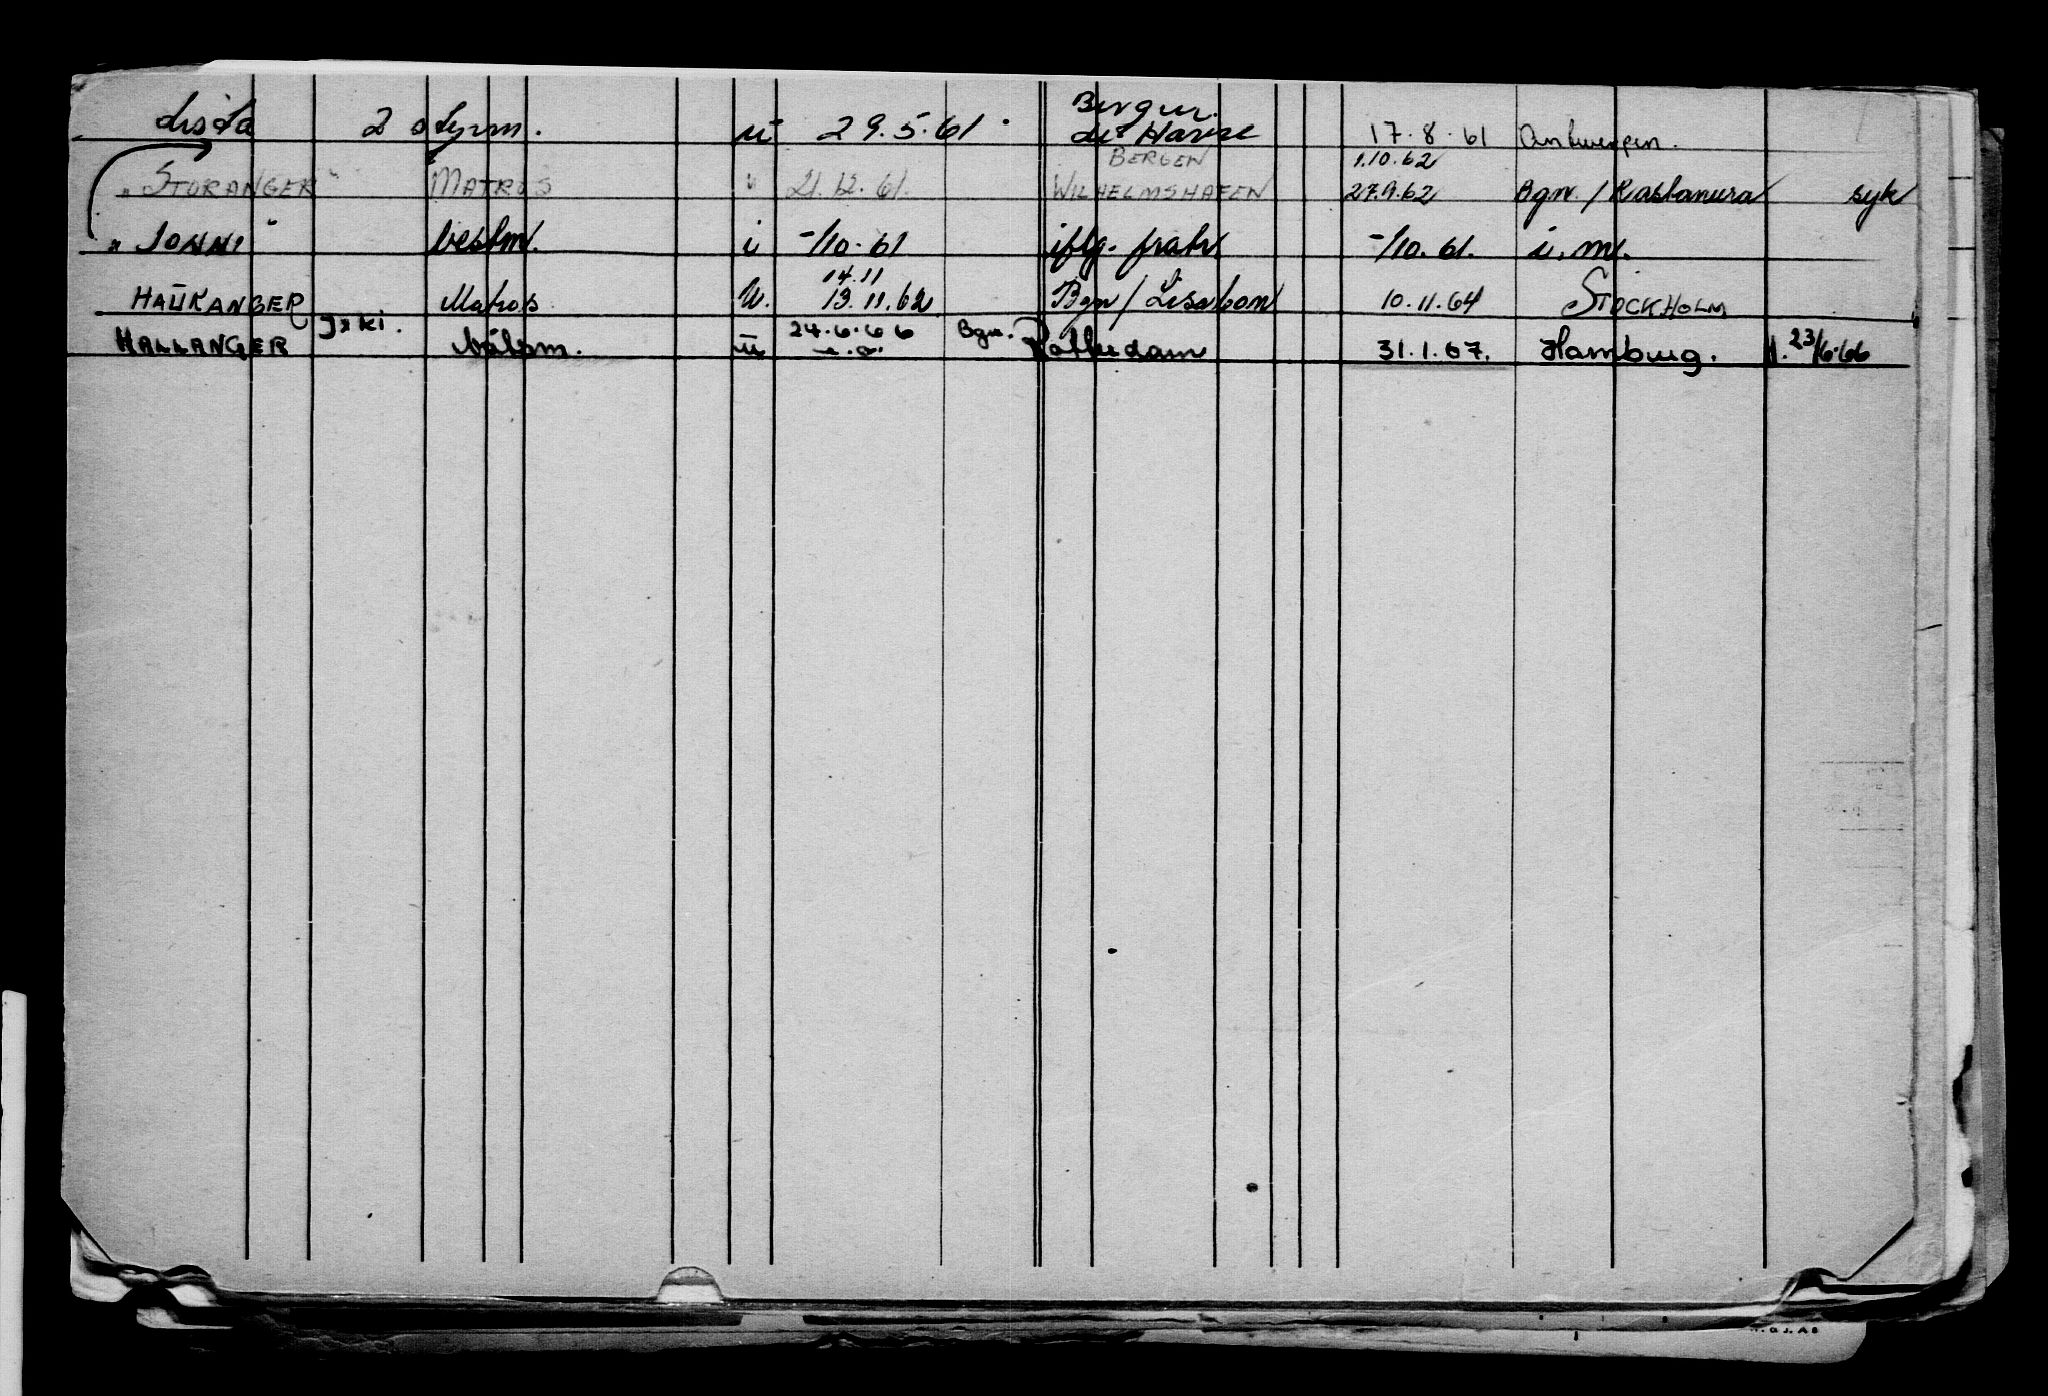 Lista 2 styrm. u 29.5.61. Bergen. Le Havre 17.8.61 Antwerpen.
"STORANGER" MATROS u 21.12.61. BERGEN WILHELMSHAFEN 1.10.62 27.9.62 Bgn. / syk
"SONNI" bestm. i -/10-61 iflg. frakt -/10.61. i. m.
HAUKANGER Matros U. 14.11 13.11.62 Bgn / Lisabon 10.11.64 STOCKHOLM
HALLANGER båtsm. u 24.6.66 Bgn. Rotterdam 31.1.67. Hamburg. 23/6-66